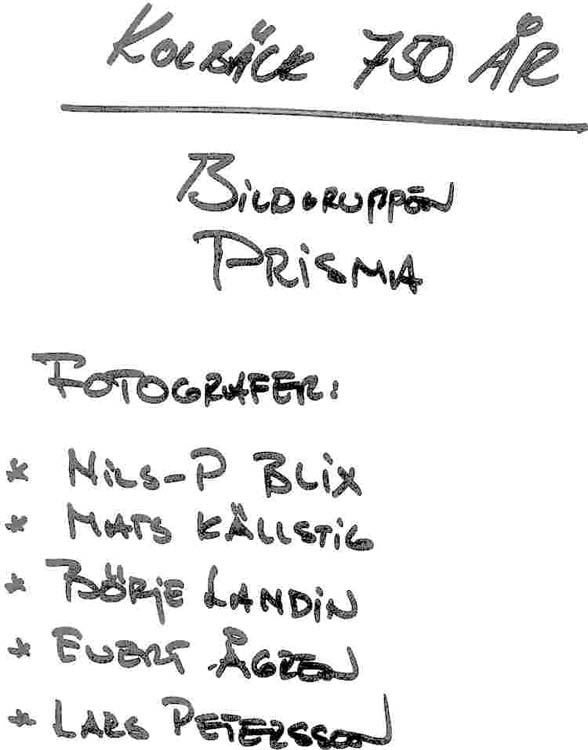 KOLBÄCK 750 ÅR
BILDGRUPPEN
PRISMA
FOTOGRAFER:
* NILS-P BLIX
* MATS KÄLLSTIG
* BÖRJE LANDIN
* EVERT ÅGREN
* LARS PETERSSON